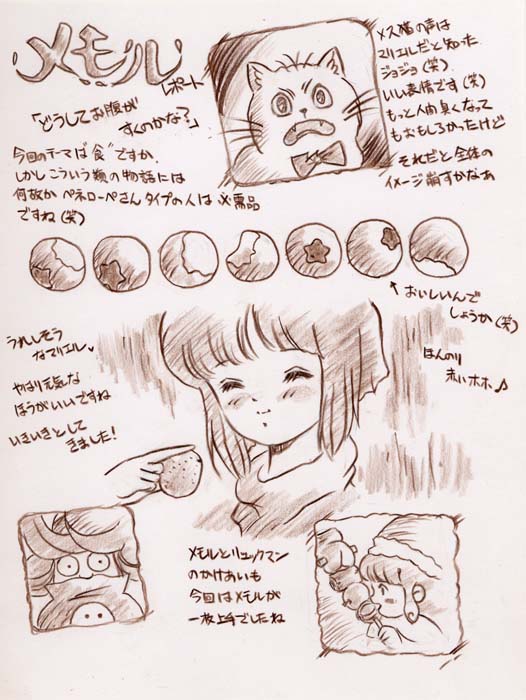 メモル
レポート
「どうしてお腹が
すくのかな?」
今回のテーマは“食”ですか
しかしこういう類の物語には
何故かペネローペさんタイプの人は必需品
ですね(笑)
メス猫の声は
マリエルだと知った
ジョジョ(笑)
いい表情です(笑)
もっと人間臭くなって
もおもしろかったけど
それだと全体の
イメージ崩すかなぁ
↑おいしいんで
しょうか(笑)
うれしそう
なマリエル♥
やはり元気な
ほうがいいですね
いきいきとして
きました!
ほんのり
赤いホホ♪
メモルとリュックマン
のかけあいも
今回はメモルが
一枚上手でしたね